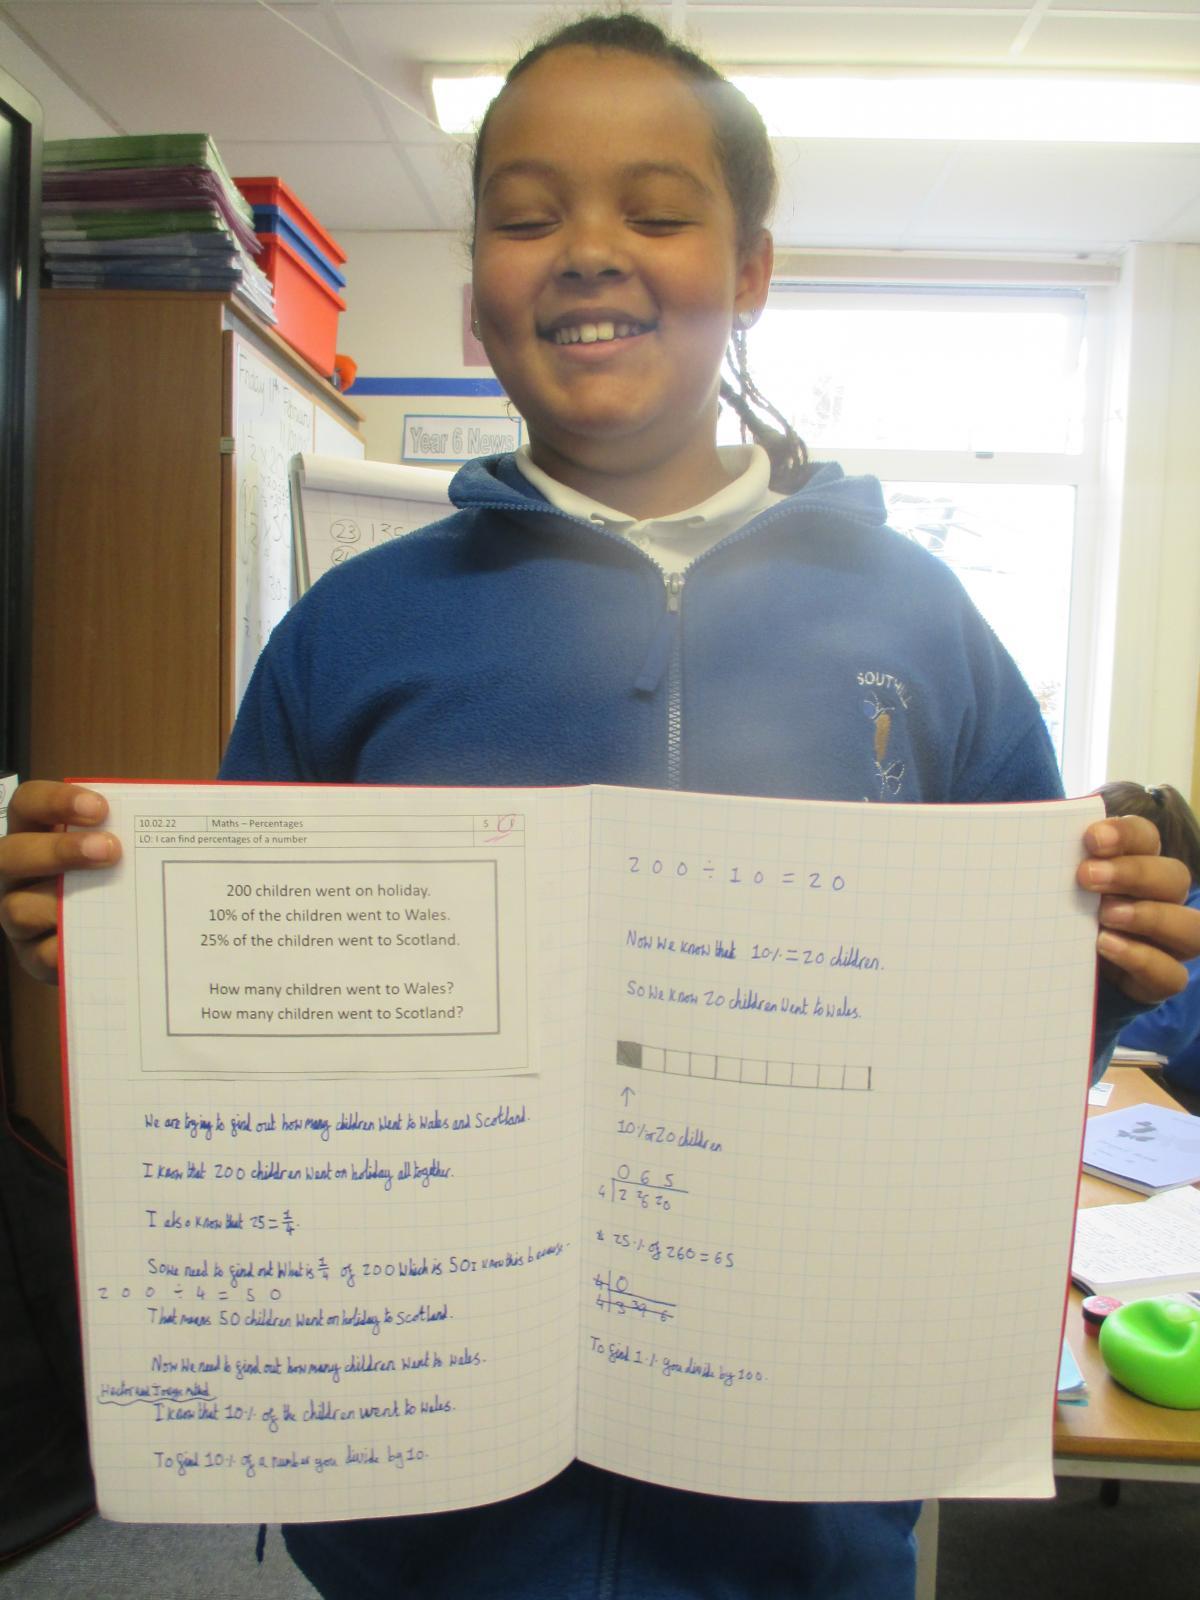 Friday 11th February
Year 6 News
23 135
SOUTHILL
10.02.22 Maths – Percentages S
LO: I can find percentages of a number
200 children went on holiday.
10% of the children went to Wales.
25% of the children went to Scotland.
How many children went to Wales?
How many children went to Scotland?
We are trying to find out how many children went to Wales and Scotland.
I know that 200 children went on holiday all together.
I also know that 25 = 1/4.
So we need to find out what is 1/4 of 200 which is 50 I know this because -
200 ÷ 4 = 50
That means 50 children went on holiday to Scotland.
Now we need to find out how many children went to Wales.
method
I know that 10% of the children went to Wales.
To find 10% of a number you divide by 10.
200 ÷ 10 = 20
Now we know that 10% = 20 children.
So we know 20 children went to Wales.
10% or 20 children
0 6 5
4 2 26 20
* 25% of 260 = 65
4 0
4 3 39 6
To find 1% you divide by 100.